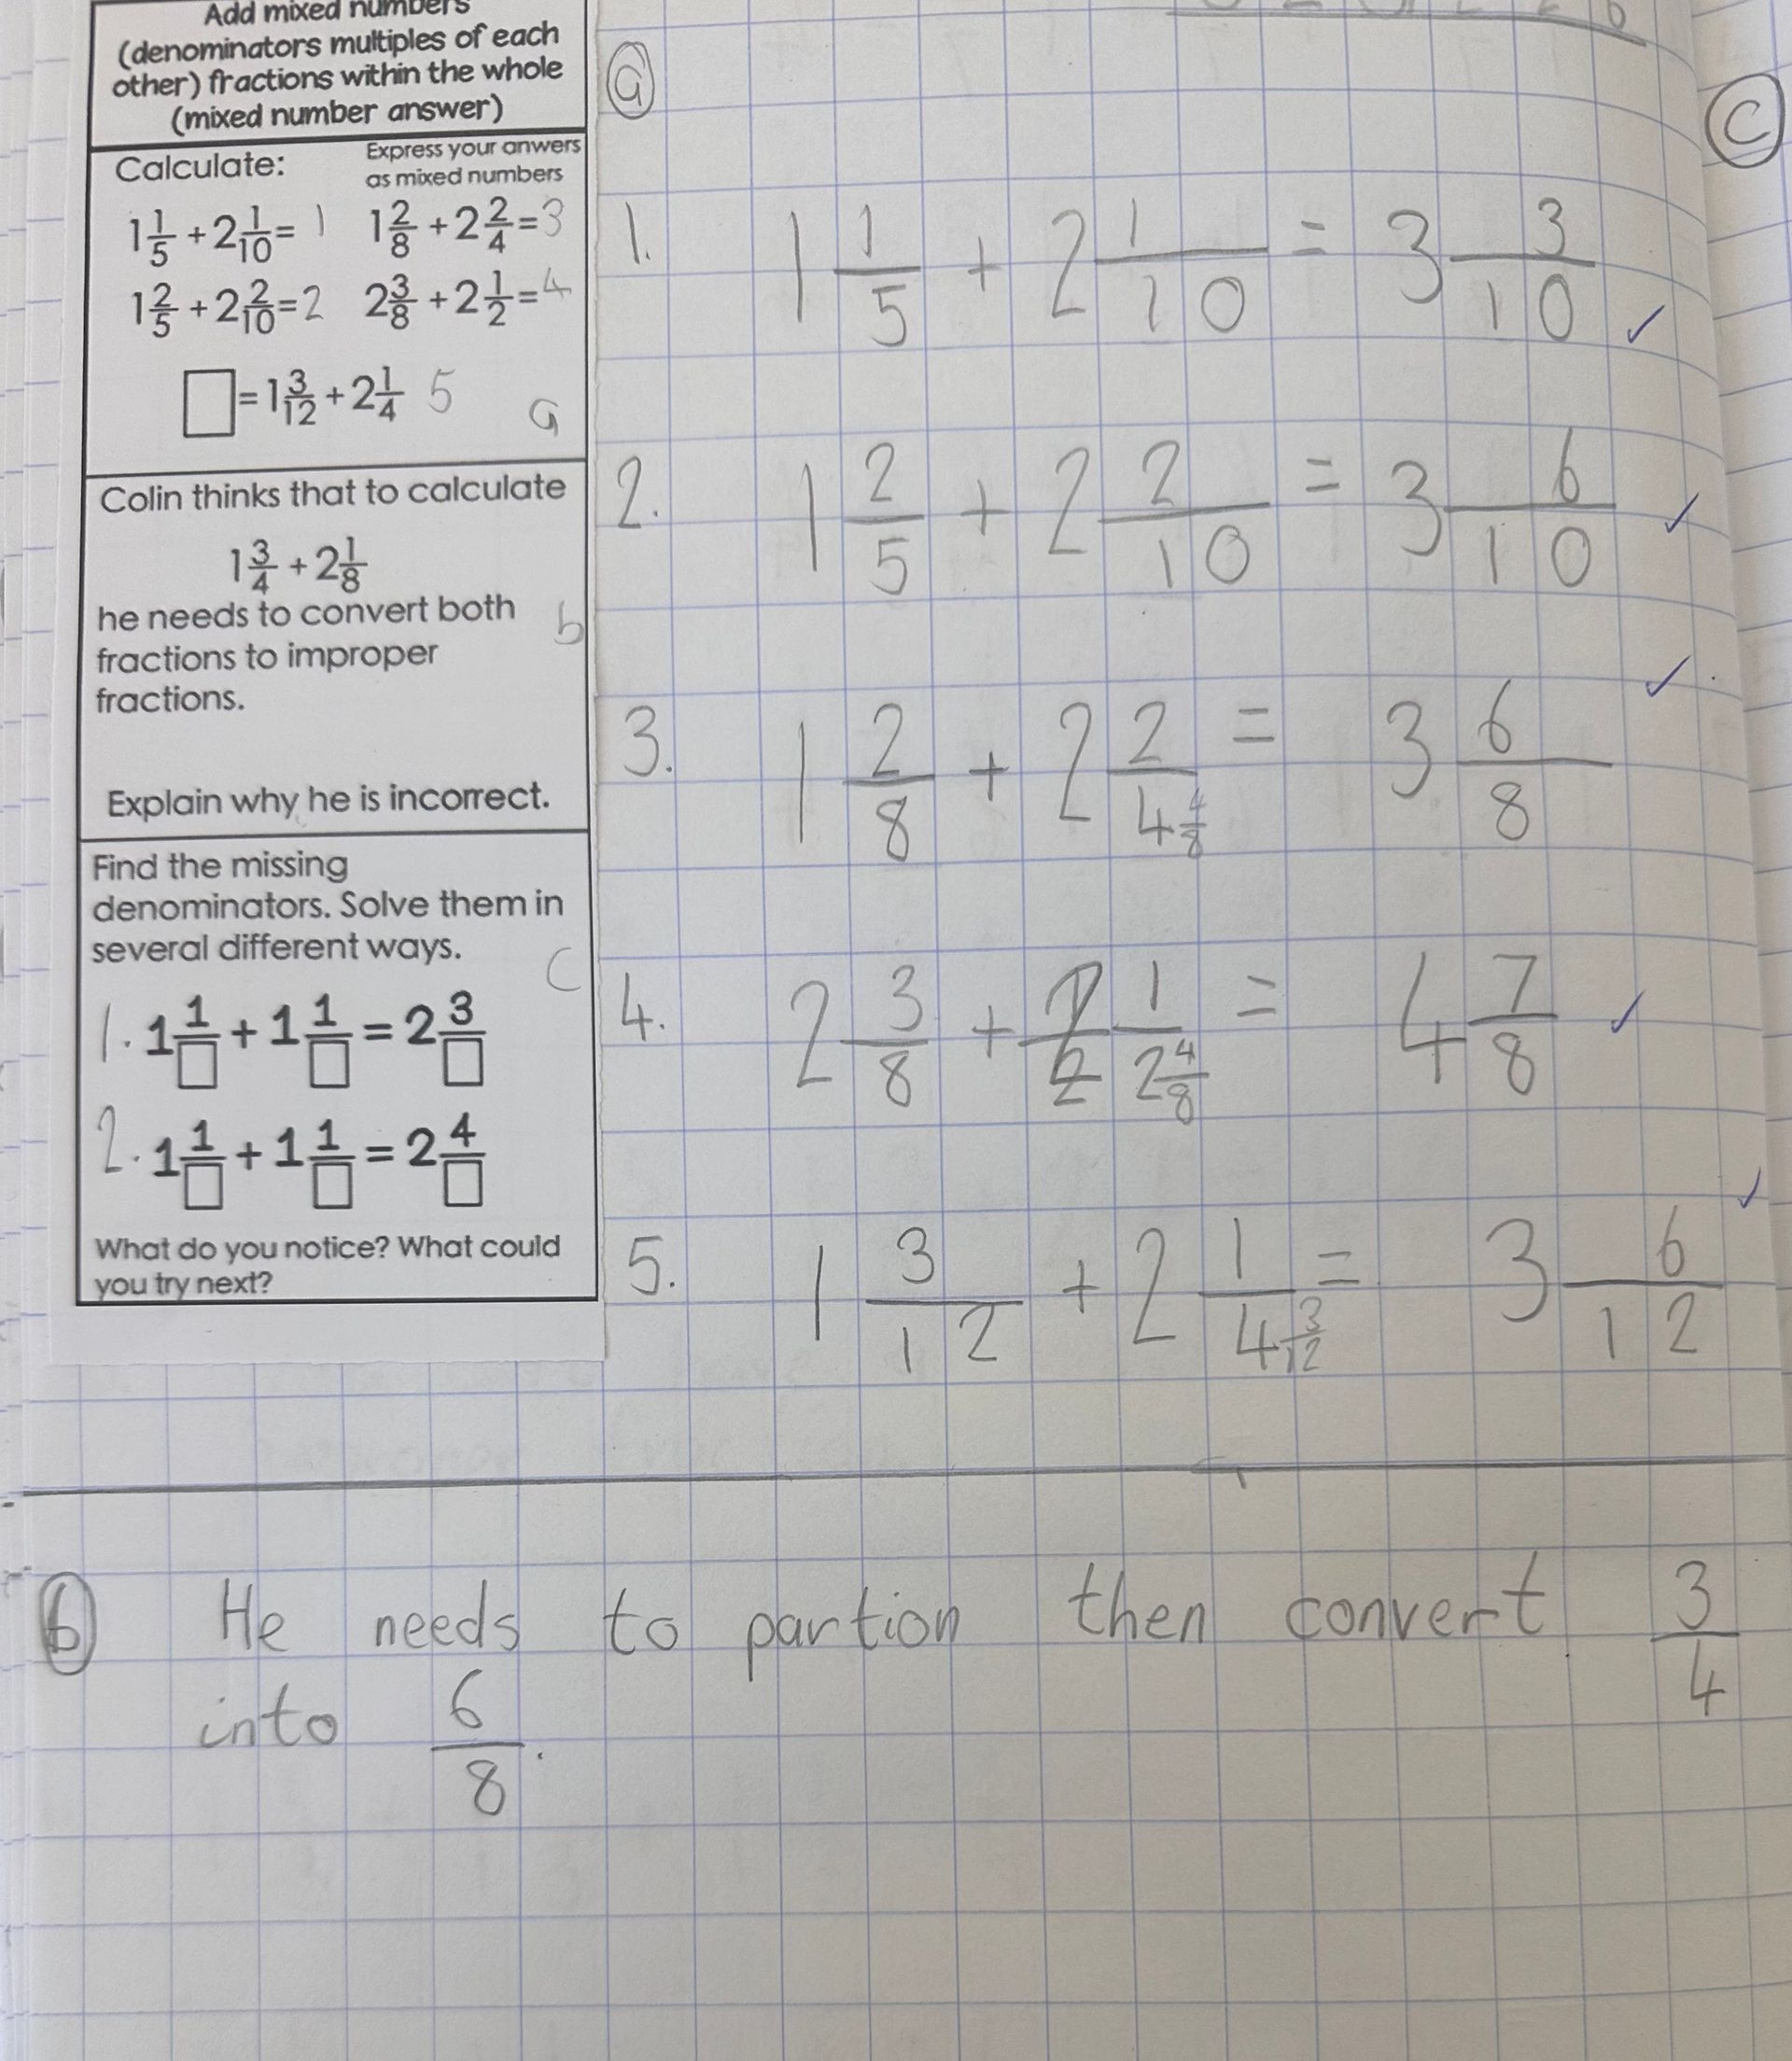 Add mixed numbers
(denominators multiples of each
other) fractions within the whole
(mixed number answer)
Calculate:
Express your anwers
as mixed numbers
1 1/5 + 2 1/10 = 1
1 2/8 + 2 2/4 = 3
1 2/5 + 2 2/10 = 2
2 3/8 + 2 1/2 = 4
□ = 1 3/12 + 2 1/4 5
a
Colin thinks that to calculate
1 3/4 + 2 1/8
he needs to convert both
fractions to improper
fractions.
b
Explain why he is incorrect.
Find the missing
denominators. Solve them in
several different ways.
c
1. 1 1/□ + 1 1/□ = 2 3/□
2. 1 1/□ + 1 1/□ = 2 4/□
What do you notice? What could
you try next?
a
1. 1 1/5 + 2 1/10 = 3 3/10 ✓
2. 1 2/5 + 2 2/10 = 3 6/10 ✓
3. 1 2/8 + 2 2/4 4/8 = 3 6/8 ✓
4. 2 3/8 + 2 1/2 4/8 = 4 7/8 ✓
5. 1 3/12 + 2 1/4 3/12 = 3 6/12 ✓
b He needs to partion then convert 3/4
into 6/8.
C